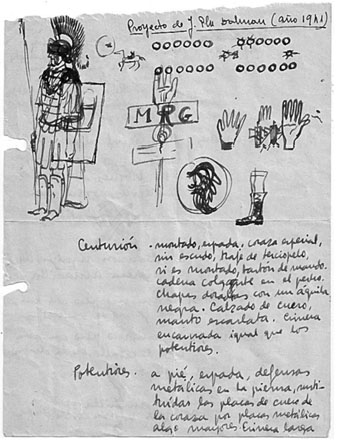 Proyecto de J. Pla Dalmau (año 1941)
MRG
Centurión - montado, espada. coraza especial,
sin escudo, traje de terciopelo,
si es montado, bastón de mando.
cadena colgante en el pecho.
Chapes doradas con un águila
negra. Calzado de cuero,
manto escarlata. Cimera
encarnada igual que los
potentiores.
Potentiores. a pie, espada, defensas
metálicas en la pierna, susti-
tuidas las placas de cuero de
la coraza por placas metálicas
algo mayores Cimera larga